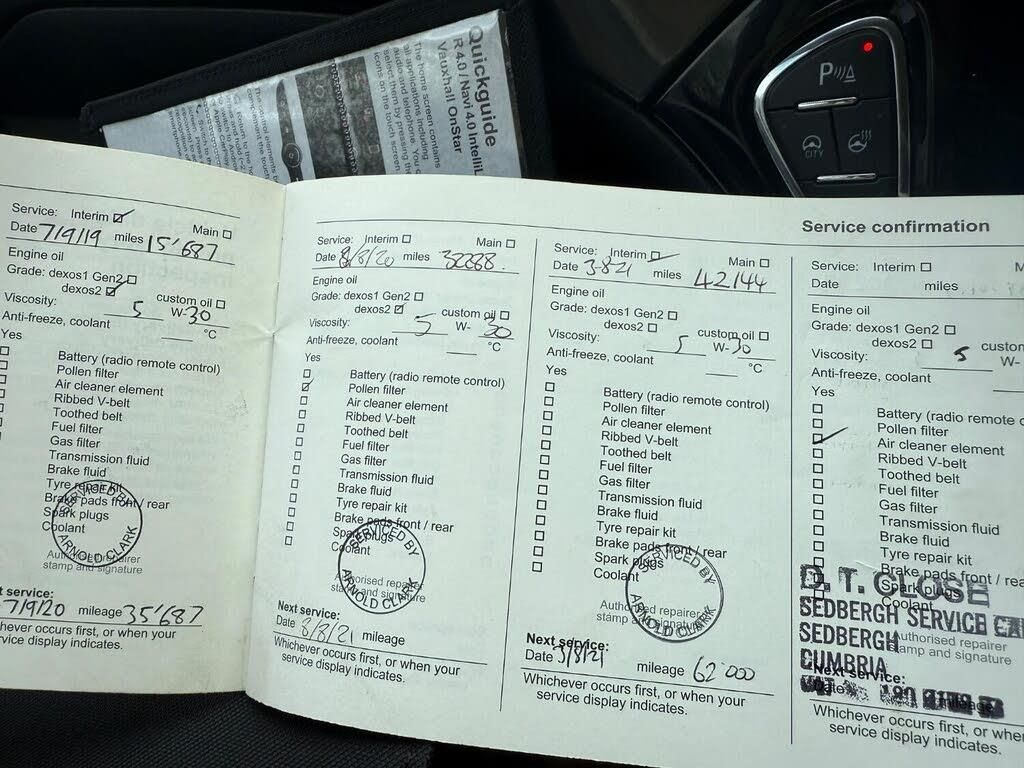 Quickguide
R 4.0 / Navi 4.0 IntelliL
Vauxhall OnStar
The home screen contains
all applications including
audio and telephone. You c
select them by pressing the
icons on the touch screen.
P
CITY
Service confirmation
Service: Interim ☑ Main ☐
Date 7/9/19 miles 15'687
Engine oil
Grade: dexos1 Gen2 ☐
dexos2 ☑ custom oil ☐
Viscosity: 5 W-30
Anti-freeze, coolant °C
Yes
Battery (radio remote control)
Pollen filter
Air cleaner element
Ribbed V-belt
Toothed belt
Fuel filter
Gas filter
Transmission fluid
Brake fluid
Tyre repair kit
Brake pads front / rear
Spark plugs
Coolant
SERVICED BY
ARNOLD CLARK
Authorised repairer
stamp and signature
t service:
7/9/20 mileage 35'687
hever occurs first, or when your
rvice display indicates.
Service: Interim ☐ Main ☐
Date 8/8/20 miles
Engine oil
Grade: dexos1 Gen2 ☐
dexos2 ☑ custom oil ☐
Viscosity: 5 W- 30
Anti-freeze, coolant °C
Yes
☐ Battery (radio remote control)
☑ Pollen filter
☐ Air cleaner element
☐ Ribbed V-belt
☐ Toothed belt
☐ Fuel filter
☐ Gas filter
☐ Transmission fluid
☐ Brake fluid
☐ Tyre repair kit
☐ Brake pads front / rear
☐ Spark plugs
☐ Coolant
SERVICED BY
ARNOLD CLARK
Authorised repairer
stamp and signature
Next service:
Date 8/8/21 mileage
Whichever occurs first, or when your
service display indicates.
Service: Interim ☑ Main ☐
Date 3-8-21 miles 42144
Engine oil
Grade: dexos1 Gen2 ☐
dexos2 ☐ custom oil ☐
Viscosity: 5 W-30
Anti-freeze, coolant °C
Yes
☐ Battery (radio remote control)
☐ Pollen filter
☐ Air cleaner element
☐ Ribbed V-belt
☐ Toothed belt
☐ Fuel filter
☐ Gas filter
☐ Transmission fluid
☐ Brake fluid
☐ Tyre repair kit
☐ Brake pads front / rear
☐ Spark plugs
☐ Coolant
SERVICED BY
ARNOLD CLARK
Authorised repairer
stamp and signature
Next service:
Date 3/8/21 mileage 62'000
Whichever occurs first, or when your
service display indicates.
Service: Interim ☐ M
Date miles
Engine oil
Grade: dexos1 Gen2 ☐
dexos2 ☐ custom
Viscosity: 5 W-
Anti-freeze, coolant
Yes
☐ Battery (radio remote c
☐ Pollen filter
☑ Air cleaner element
☐ Ribbed V-belt
☐ Toothed belt
☐ Fuel filter
☐ Gas filter
☐ Transmission fluid
☐ Brake fluid
☐ Tyre repair kit
☐ Brake pads front / rea
Spark plugs
Coolant
D. T. CLOSE
SEDBERGH SERVICE
SEDBERGH
CUMBRIA
Authorised repairer
stamp and signature
Next service:
Date mileage
Whichever occurs first, or when
service display indicates.